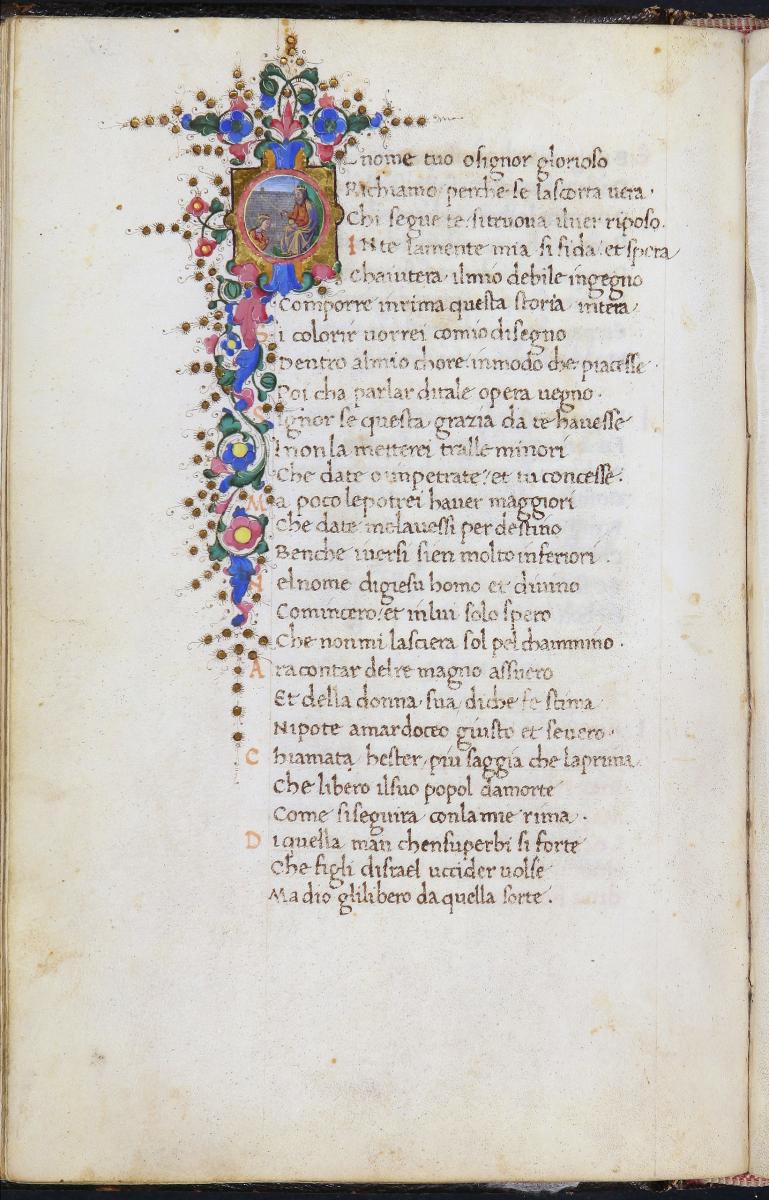 L nome tuo o signor glorioso
Richiamo perche se lascorta uera.
Chi segue te, si truoua iluer riposo.
INte lamente mia si fida et spera
Chaiutera ilmio debile ingegno
Comporre inrima questa storia intera
Si colorir uorrei comio disegno
Dentro almio chore inmodo che piacesse.
Poi cha parlar ditale opera uegno.
Signor se questa grazia da te hauesse
I non la metterei tralle minori
Che date o inpetrate et tu concesse.
Ma poco lepotrei hauer maggiori
Che date melauessi per destino
Benche iuersi sien molto inferiori.
Nel nome digiesu homo et diuino
Comincero et inlui solo spero
Che nonmi lasciera sol pel chammino.
A racontar delre magno assuero
Et della donna sua diche fe stima
Nipote amardoceo giusto et seuero.
Chiamata hester piu saggia che laprima
Che libero ilsuo popol damorte
Come siseguira conlamie rima.
Di quella man chensuperbi si forte
Che figli disrael uccider uolse
Ma dio glilibero da quella sorte.